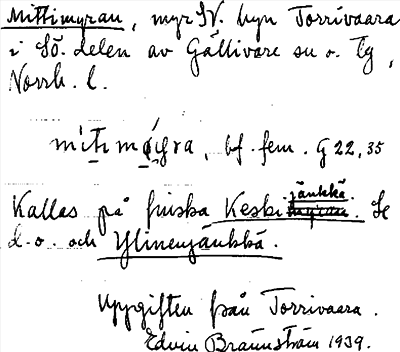 Mittimyran, myr SV. byn Torrivaara
i Sö. delen av Gällivare sn o. tg,
Norrb. l.
mìtimỳra, bf. fem. G 22, 35
Kallas på finska Keskijänkkä. Se
d. o. och Ylinenjänkkä.
Uppgiften från Torrivaara.
Edvin Brännström 1939.